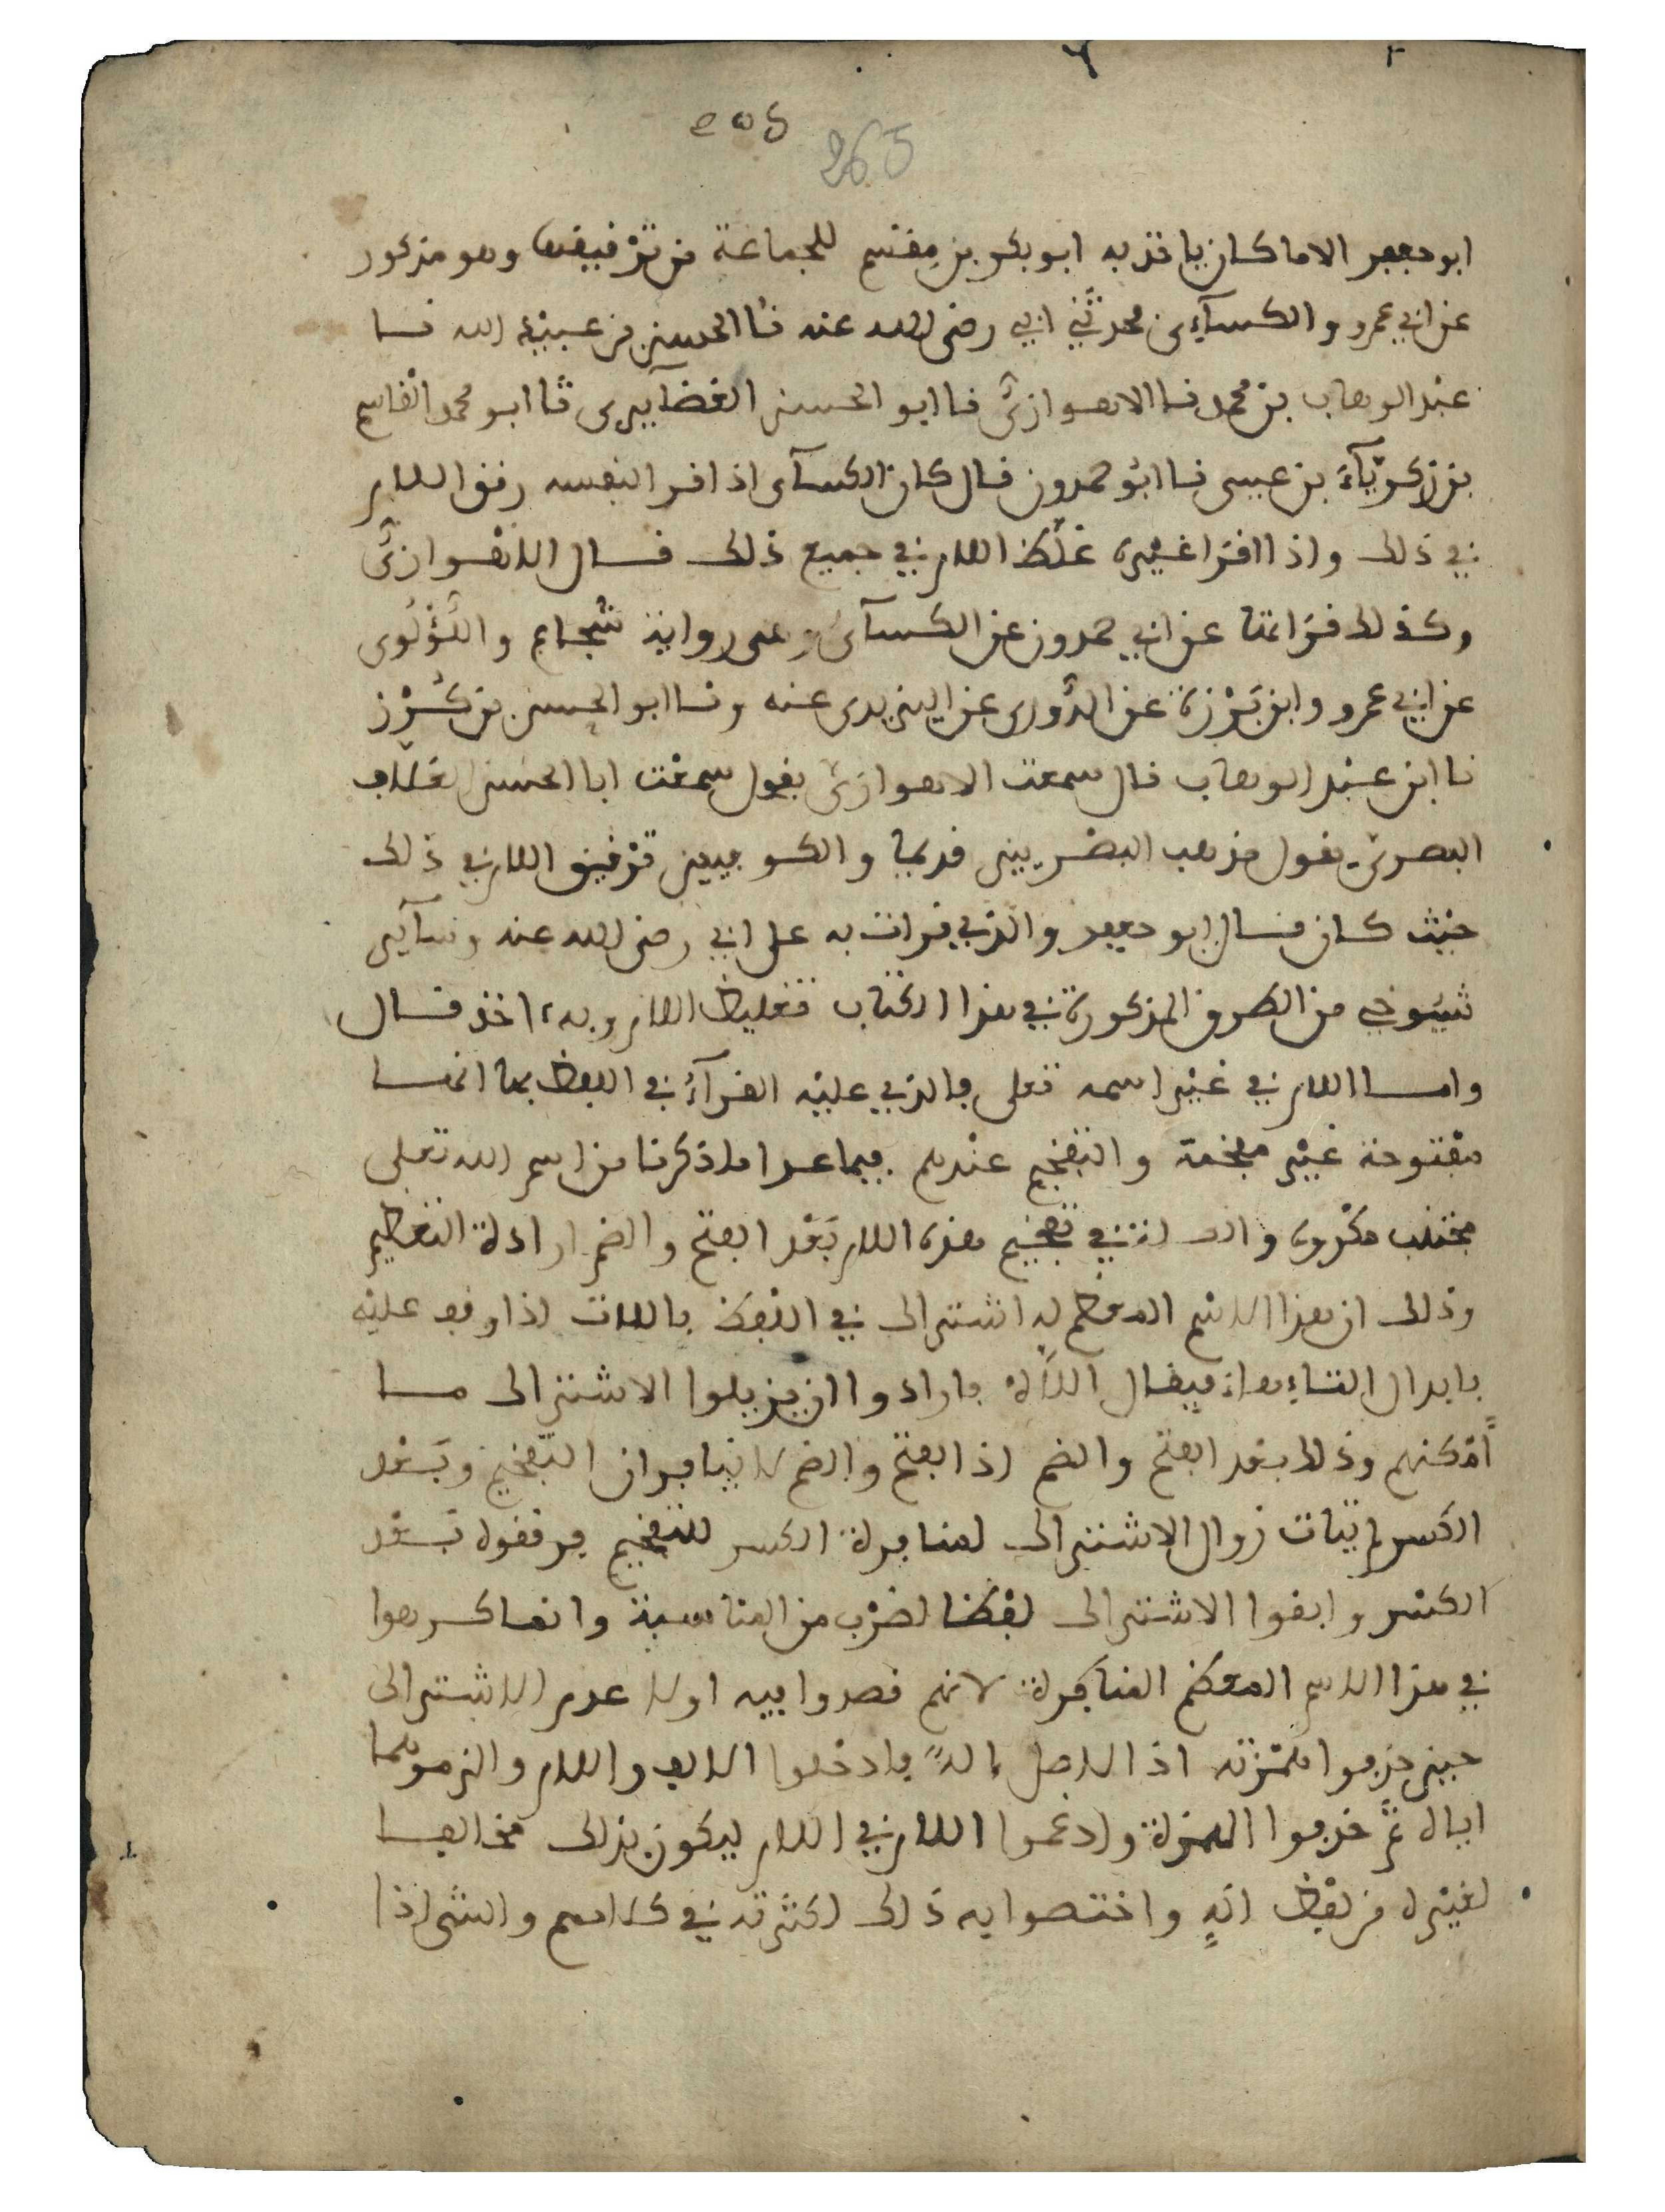 265
ابو جعفر الا ما كان ياخذ به ابو بكر بن مِقسم للجماعة من تَرْفيقها وهو مذكور
عن ابي عمرو والكسآءى حدثني ابي رضى الله عنه نا الحسين بن عبيد الله نا
عبد الوهاب بن محمد نا الاهوازىّ نا ابو الحسن الغضآيرى نا ابو محمد القاسم
بن زكريّآء بن عيسى نا ابو حمدون قال كان الكسآى اذا قرا لنفسه رقق اللام
في ذلك واذا اقرا غيره غلّظ اللام في جميع ذلك قال الاهوازىّ
وكذلك قراتها عن ابي حمدون عن الكسآى وعلى رواية شجاع واللُّؤْلُوى
عن ابي عمرو وابن بَرْزة عن الدُّورى عن اليزيدى عنه ونا ابو الحسن بن كُرْز
نا ابن عبد الوهاب قال سمعت الاهوازىّ يقول سمعت ابا الحسن العلاف
البصرىّ يقول مذهب البصريين قديما والكوفيين ترقيق اللام في ذلك
حيث كان قال ابو جعفر والذي قرات به على ابي رضى الله عنه وسآير
شيوخي من الطرق المذكورة في هذا الكتاب تغليظ اللام وبه ءاخذ قال
واما اللام في غير اسمه تعلى فالذي عليه القرآء في اللفظ بها انها
مفتوحة غير مفخمة والتفخيم عندهم فيما عدا ما ذكرنا من اسم الله تعلى
مجتنب مكروه والعلة في تفخيم هذه اللام بَعْد الفتح والضم ارادة التعظيم
وذلك ان هذا الاسم المعظم له اشتراك في اللفظ باللات اذا وقف عليه
بابدال التاء هاء فيقال اللاه فارادوا ان يزيلوا الاشتراك ما
أمْكنهم وذلك بعد الفتح والضم اذ الفتح والضم لا ينافران التفخيم وبَعْد
الكسر لم يتات زوال الاشتراك لمنافرة الكسر للتفخيم فرققوه بَعْد
الكسر وابقوا الاشتراك لفظا لضرْب من المناسبة وانما كرهوا
في هذا الاسم المعظم المنافرة لانهم قصدوا فيه اولا عدم الاشتراك
حين حذفوا همْزته اذ الاصل إلاهٌ فادخلوا الالف واللام والزموهما
اياه ثمّ حذفوا الهمزة وادغموا اللام في اللام ليكون بذلك مخالفا
لغيره من لفظ الهٍ واختصوا به ذلك لكثرته في كلامهم والشى اذا